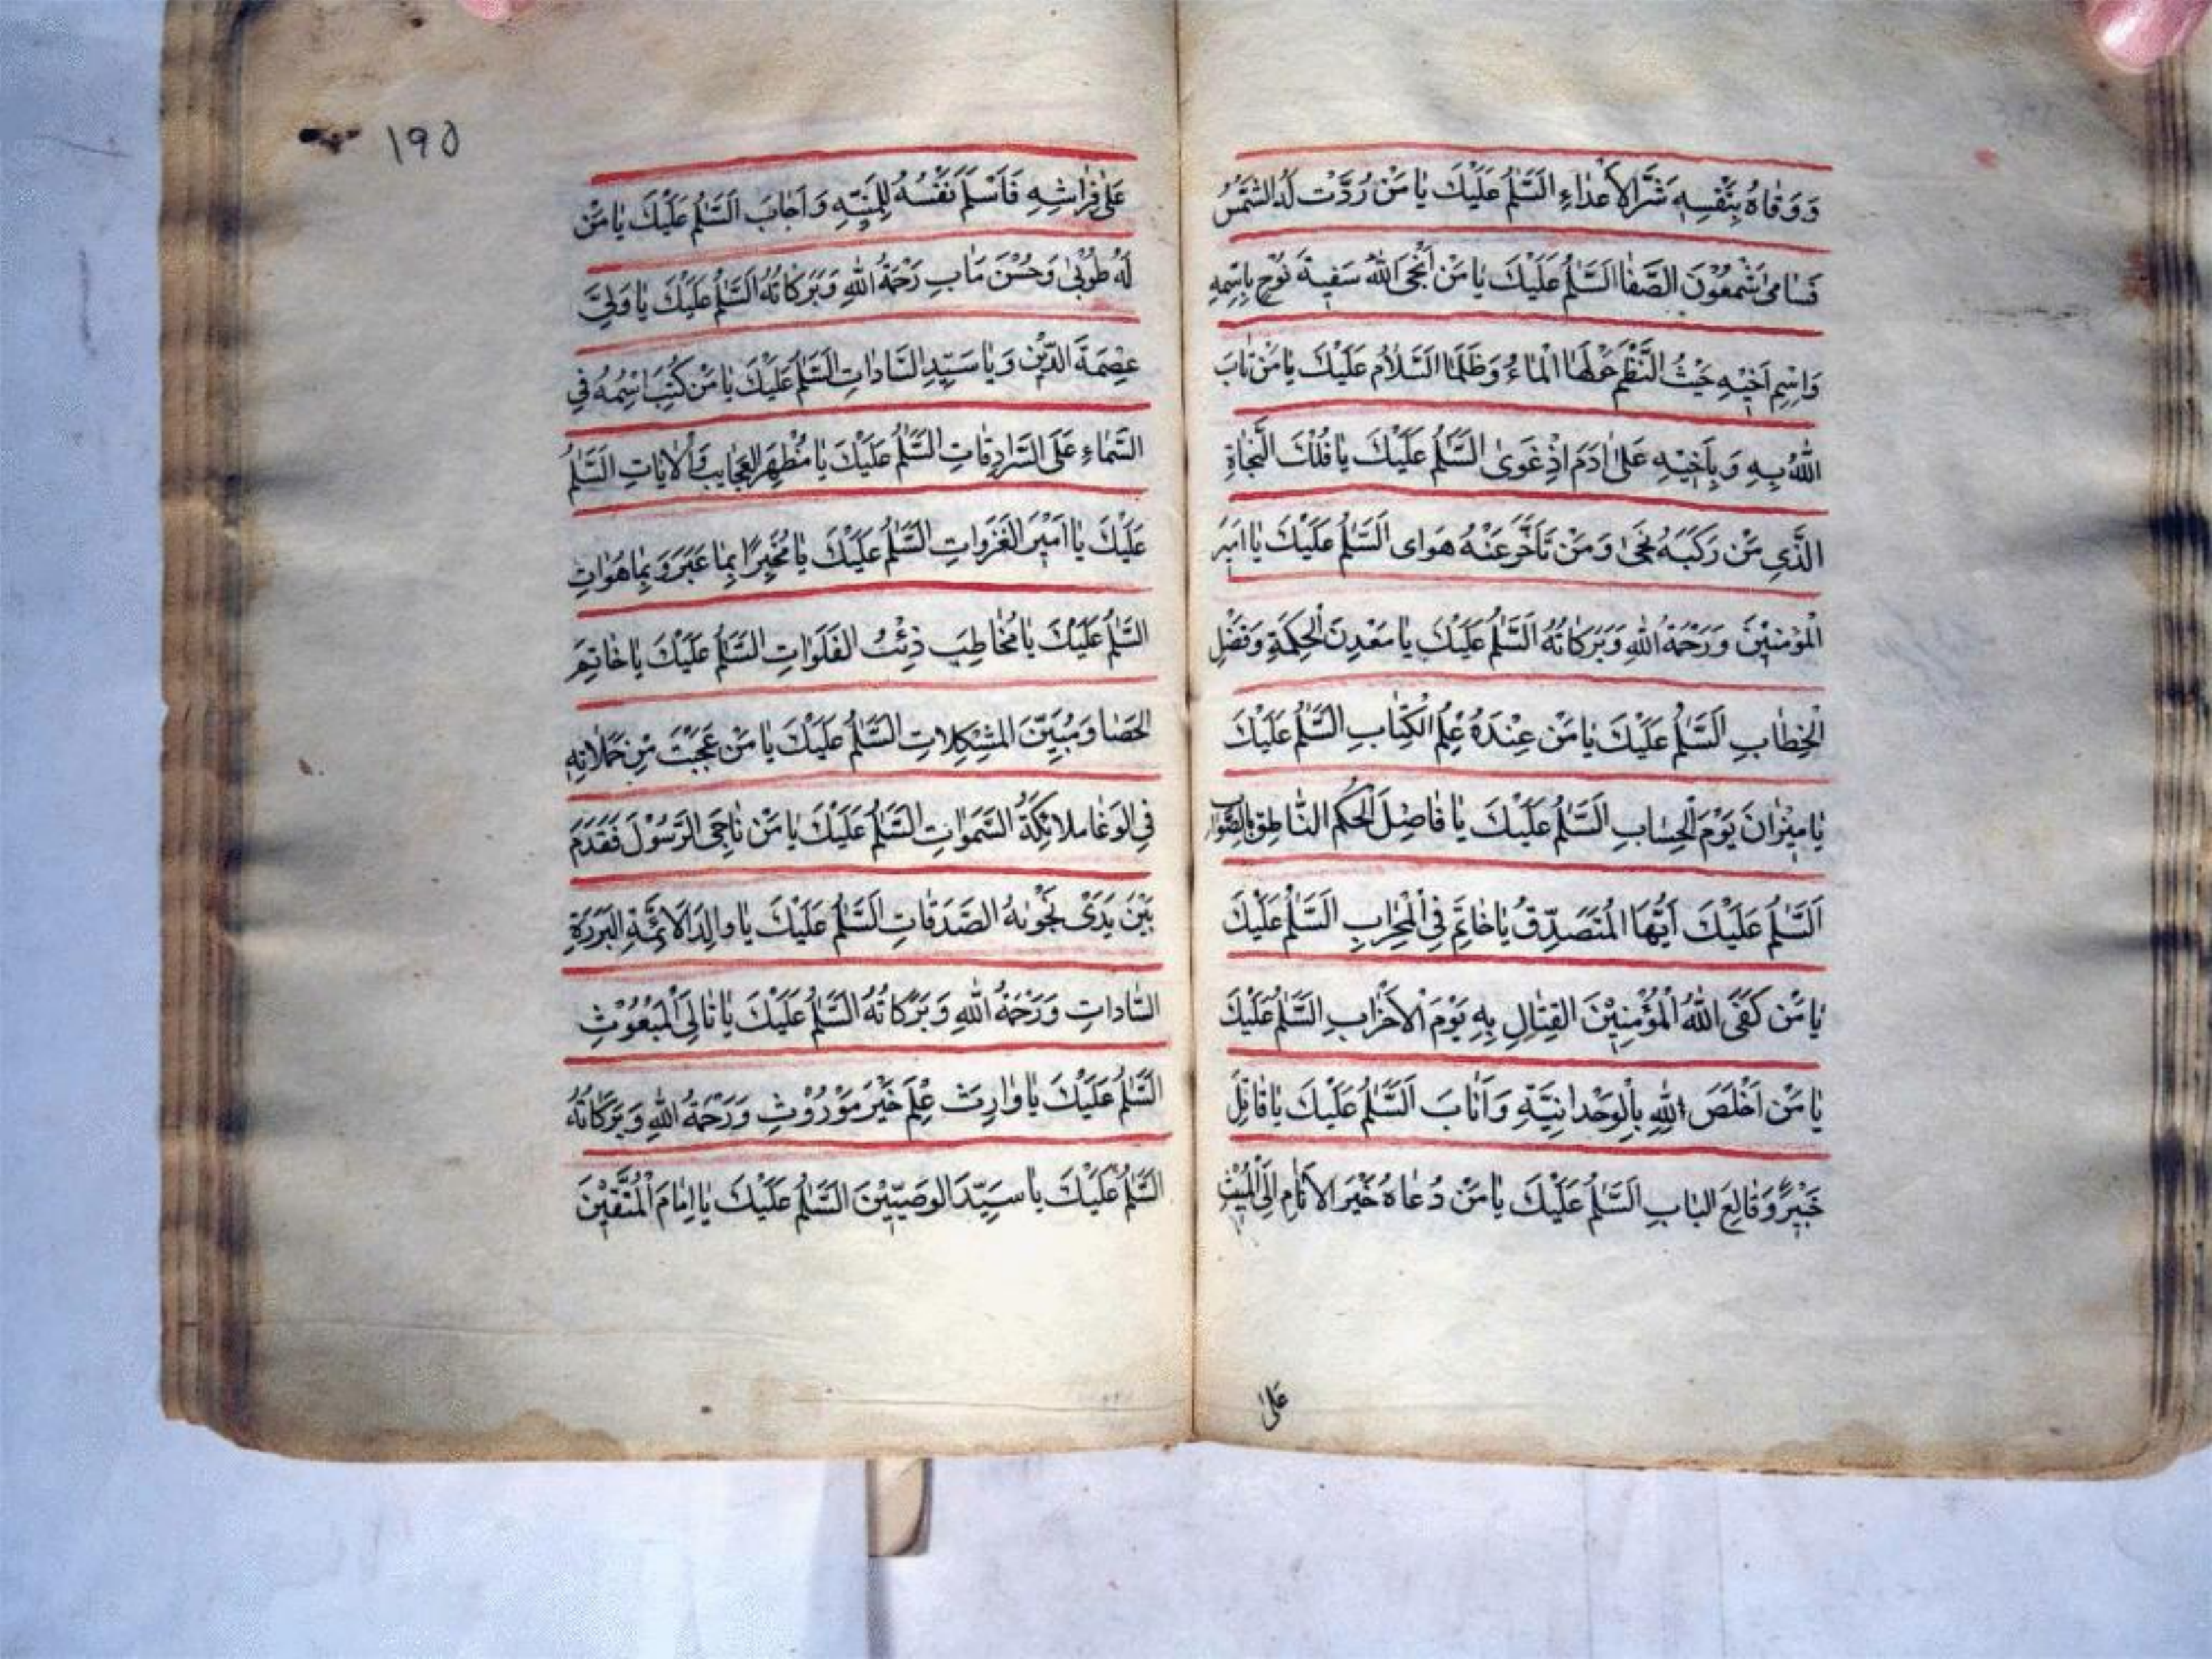 وَوَقاهُ بِنَفْسِهِ شَرَّ الاَعْداءِ السَّلٰمُ عَلَيْكَ يا مَنْ رُدَّتْ لَهُ الشَّمْسُ
فَسامىٰ شَمْعُوْنَ الصَّفا السَّلٰمُ عَلَيْكَ يا مَنْ اَنْجَى اللهُ سَفينَةَ نُوْحٍ بِاِسْمِهِ
وَاسْمِ اَخيْهِ حَيْثُ الْتَطَمَ حَوْلَهَا الْماءُ وَطَمَا السَّلٰامُ عَلَيْكَ يا مَنْ تابَ
اللهُ بِهِ وَبِاَخيْهِ عَلىٰ ادَمَ اِذْ غَوىٰ السَّلٰمُ عَلَيْكَ يا فُلْكَ النَّجاةِ
الَّذي مَنْ رَكَبَهُ نَجىٰ وَمَنْ تَاَخَّرَ عَنْهُ هَوای اَلسَّلٰمُ عَلَيْكَ يا اَميرَ
الْمُؤْمِنيْنَ وَرَحْمَةُ اللهِ وَبَرَكاتُهُ السَّلٰمُ عَلَيْكَ يا مَعْدِنَ الْحِكْمَةِ وَفَضْلِ
الْخِطابِ اَلسَّلٰمُ عَلَيْكَ يا مَنْ عِنْدَهُ عِلْمُ الْكِتابِ السَّلٰمُ عَلَيْكَ
يا ميْزانَ يَوْمَ الْحِسابِ السَّلٰمُ عَلَيْكَ يا فاصِلَ الْحُكْمِ النّاطِقِ بِالصَّوابِ
اَلسَّلٰمُ عَلَيْكَ اَيُّهَا الْمُتَصَدِّقُ يا خاتَمِ فِي الْمِحْرابِ السَّلٰمُ عَلَيْكَ
يا مَنْ كَفَى اللهُ الْمُؤْمِنيْنَ القِتالِ بِهِ يَوْمَ الْاَحْزابِ السَّلٰمُ عَلَيْكَ
يا مَنْ اَخْلَصَ لِلّهِ بِالْوَحْدانِيَّةِ وَاَنابَ اَلسَّلٰمُ عَلَيْكَ يا قاتِلَ
خَيْبَرٍ وَقالِعَ البابِ السَّلٰمُ عَلَيْكَ يا مَنْ دُعاهُ خَيْرَ الاَنامِ اِلَى الْمَبيْتِ
عَلىٰ
١٩٥
عَلىٰ فِراشِهِ فَاَسْلَمَ نَفْسُهُ لِلْمَنِيَّةِ وَاَجابَ اَلسَّلٰمُ عَلَيْكَ يا مَنْ
لَهُ طُوْبىٰ وَحُسْنَ مَابٍ رَحْمَةُ اللهِ وَبَرَكاتُهُ السَّلٰمُ عَلَيْكَ يا وَلِيَّ
عِصْمَةَ الدّيْنِ وَيا سَيِّدِ السّاداتِ السَّلٰمُ عَلَيْكَ يا مَنْ كُتِبَ اسْمُهُ فِي
السَّماءِ عَلَى السَّرادِقاتِ السَّلٰمُ عَلَيْكَ يا مُظْهِرَ العَجايِبِ وَالْاياتِ السَّلٰمُ
عَلَيْكَ يا اَميْرَ الغَزَواتِ السَّلٰمُ عَلَيْكَ يا مُخْبِرًا بِما غَبَرَ وَبِما هُوَ اتٍ
السَّلٰمُ عَلَيْكَ يا مُخاطِبَ ذِئْبُ الفَلَواتِ السَّلٰمُ عَلَيْكَ يا خاتِمَ
الحَصا وَمُبَيِّنَ المُشْكِلاتِ السَّلٰمُ عَلَيْكَ يا مَنْ عَجَبَتْ مِنْ حَمَلاتِهِ
فِي الوَغا ملائِكَةُ السَّمٰواتِ السَّلٰمُ عَلَيْكَ يا مَنْ ناجَى الرَّسُوْلَ فَقَدَّمَ
بَيْنَ يَدَىْ نَجْوٰيهُ الصَّدَقاتِ السَّلٰمُ عَلَيْكَ يا والِدَ الاَئِمَّةِ البَرَرَةِ
السّاداتِ وَرَحْمَةُ اللهِ وَبَرَكاتُهُ السَّلٰمُ عَلَيْكَ يا تالِيَ الْمَبْعُوْثِ
السَّلٰمُ عَلَيْكَ يا وارِثَ عِلْمَ خَيْرَ مَوْرُوْثٍ وَرَحْمَةُ اللهِ وَبَرَكاتُهُ
السَّلٰمُ عَلَيْكَ يا سَيِّدَ الوَصِيّيْنَ السَّلٰمُ عَلَيْكَ يا اِمامَ الْمُتَّقيْنَ